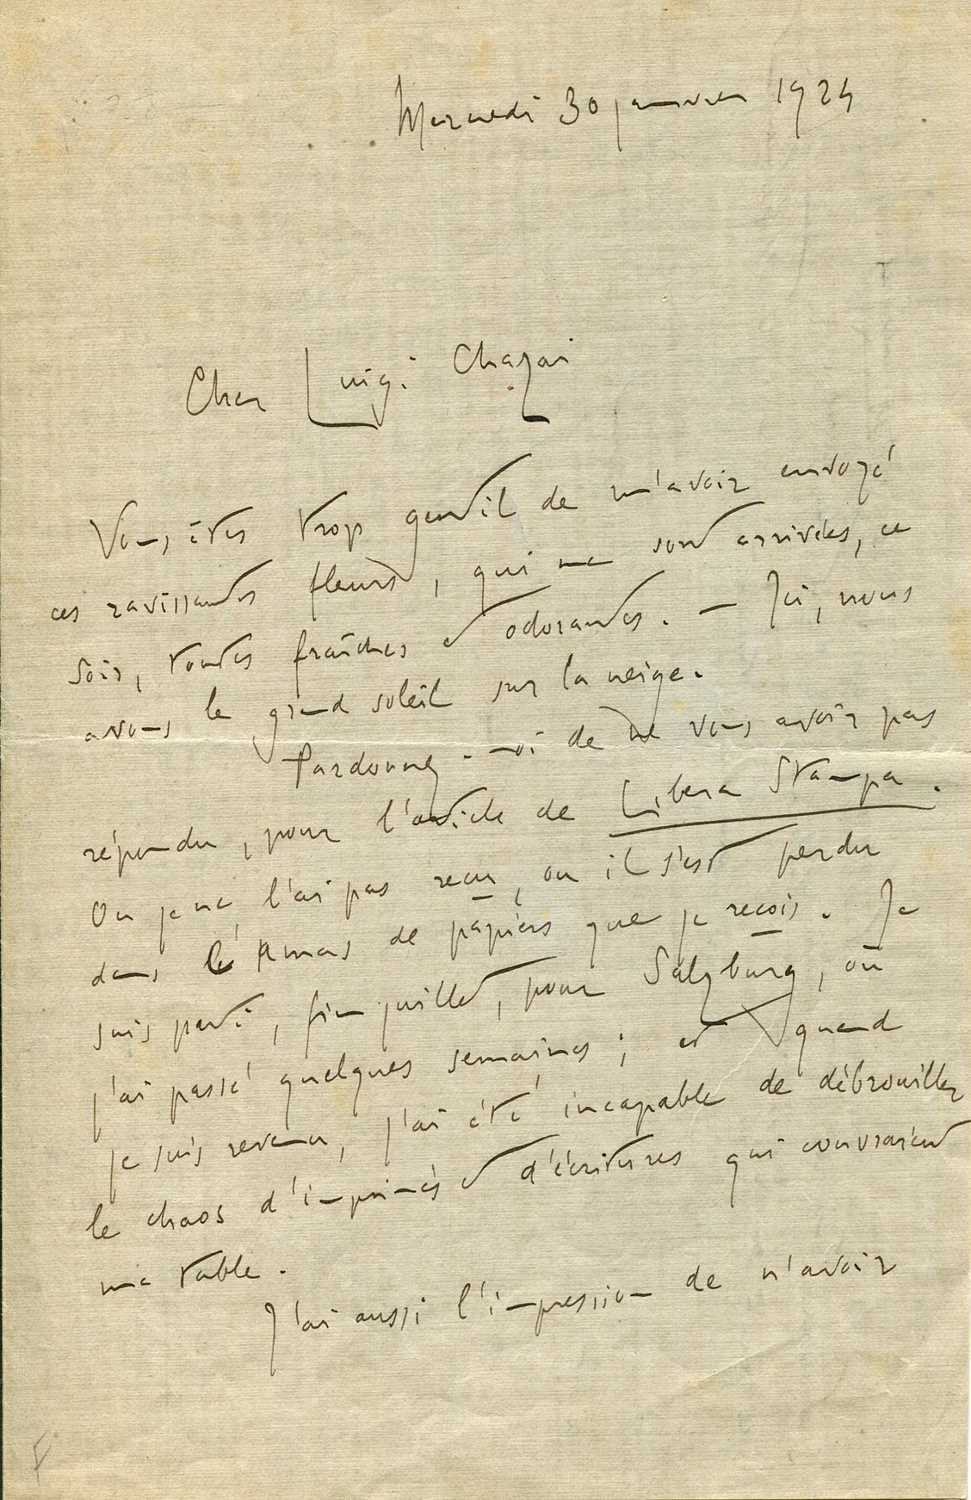 Mercredi 30 janvier 1924
Cher Luigi Chazai
Vous êtes trop gentil de m'avoir envoyé
ces ravissantes fleurs, qui me sont arrivées, ce
soir, toutes fraîches et odorantes. — Ici, nous
avons le grand soleil sur la neige.
Pardonnez-moi de ne vous avoir pas
répondu, pour l'article de Libera Stampa.
Ou je ne l'ai pas reçu, ou il s'est perdu
dans l'Amas de papiers que je reçois. Je
suis parti, fin juillet, pour Salzburg, où
j'ai passé quelques semaines ; et quand
je suis revenu, j'ai été incapable de débrouiller
le chaos d'imprimés et d'écritures qui couvraient
ma table.
J'ai aussi l'impression de n'avoir
F